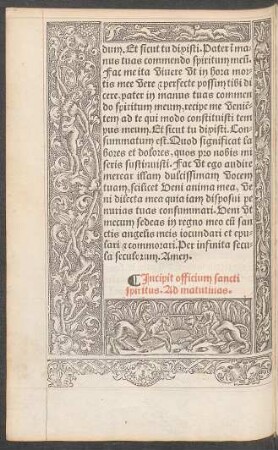 dum. Et sicut tu dixisti. Pater ī ma
nus tuas commendo spiritum meū.
Fac me ita vivere vt in hora mor
tis mee vere ⁊ perfecte possim tibi di
cere. pater in manus tuas commen
do spiritum meum. recipe me veniē
tem ad te qui modo constituisti tem
pus meum. Et sicut tu dixisti. Con
summatum est. Quod significat la
bores et dolores. quos pro nobis mi
seris sustinuisti. Fac vt ego audire
merear illam dulcissimam vocem
tuam. scilicet Veni anima mea. Ve
ni dilecta mea quia iam disposui pe
nurias tuas consummari. Veni vt
mecum sedeas in regno meo cū san
ctis angelis meis iocundari et epu
lari ⁊ commorari. Per infinita secu
la seculorum. Amen.
¶ Incipit officium sancti
spiritus. Ad matutinas.